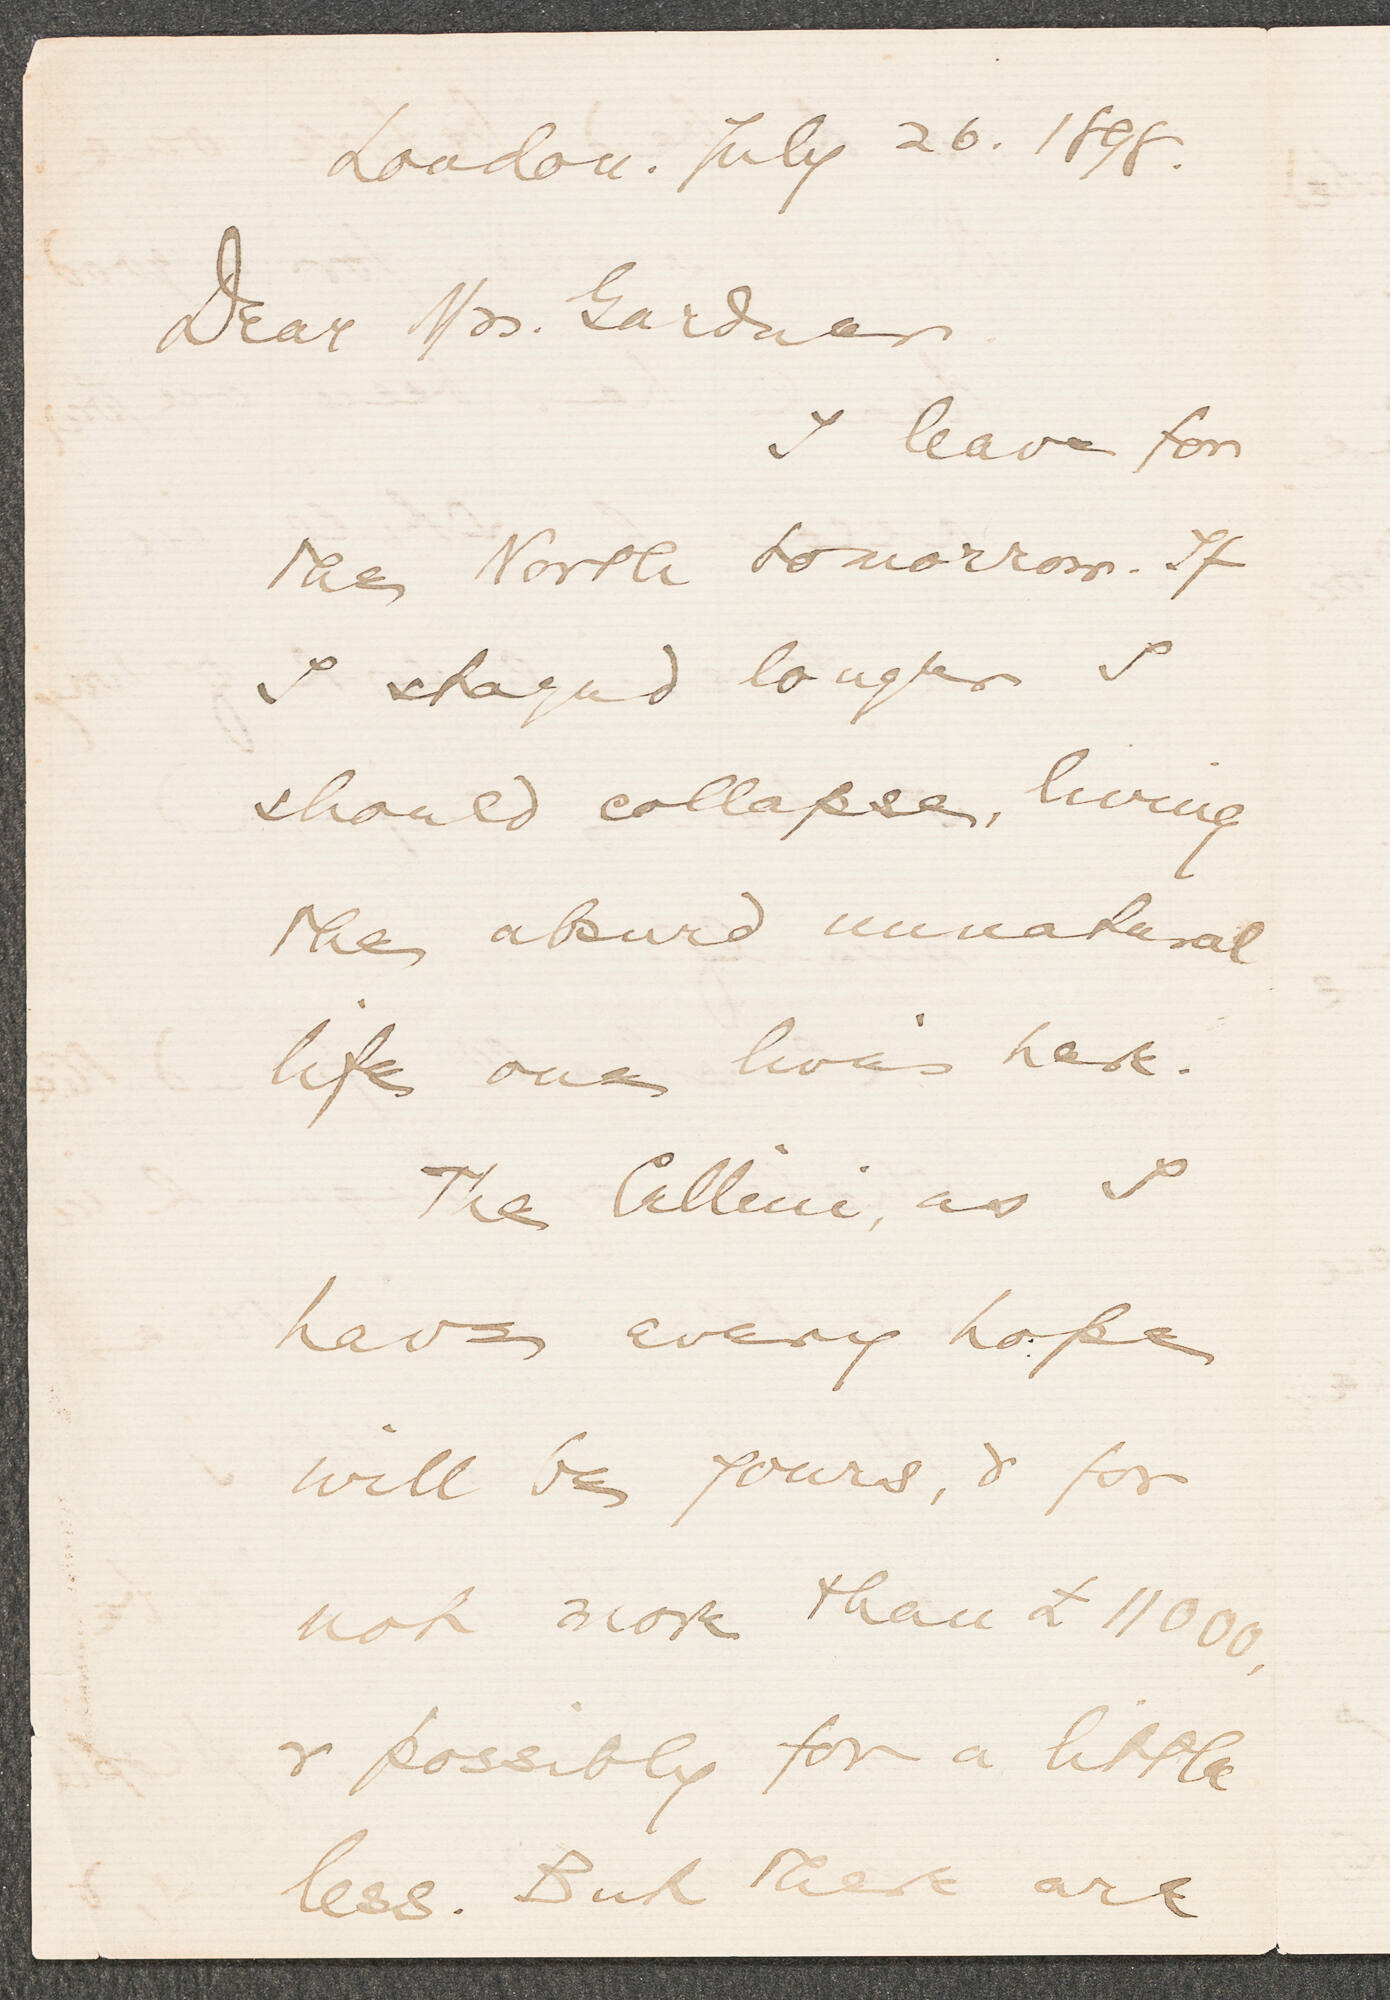 London. July 26. 1898.
Dear Mrs. Gardner
I leave for
the North tomorrow. If
I stayed longer I
should collapse, living
the absurd unnatural
life one lives here.
The Cellini, as I
have every hope
will be yours, & for
not more than £11000,
& possibly for a little
less. But there are